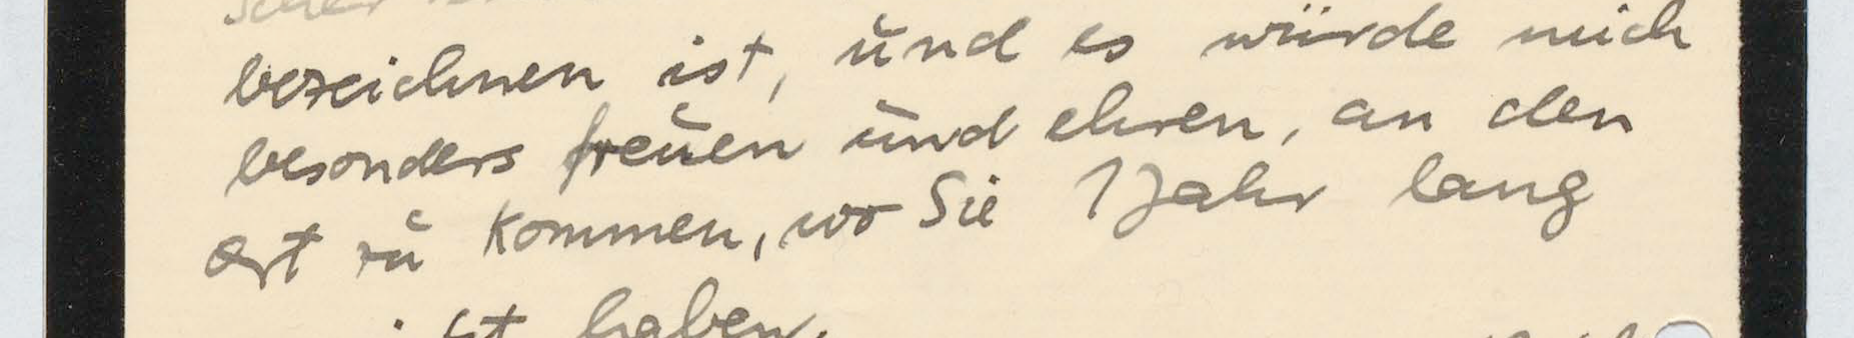 bezeichnen ist, und es würde mich
besonders freuen und ehren, an den
Ort zu kommen, wo Sie 1 Jahr lang
haben.